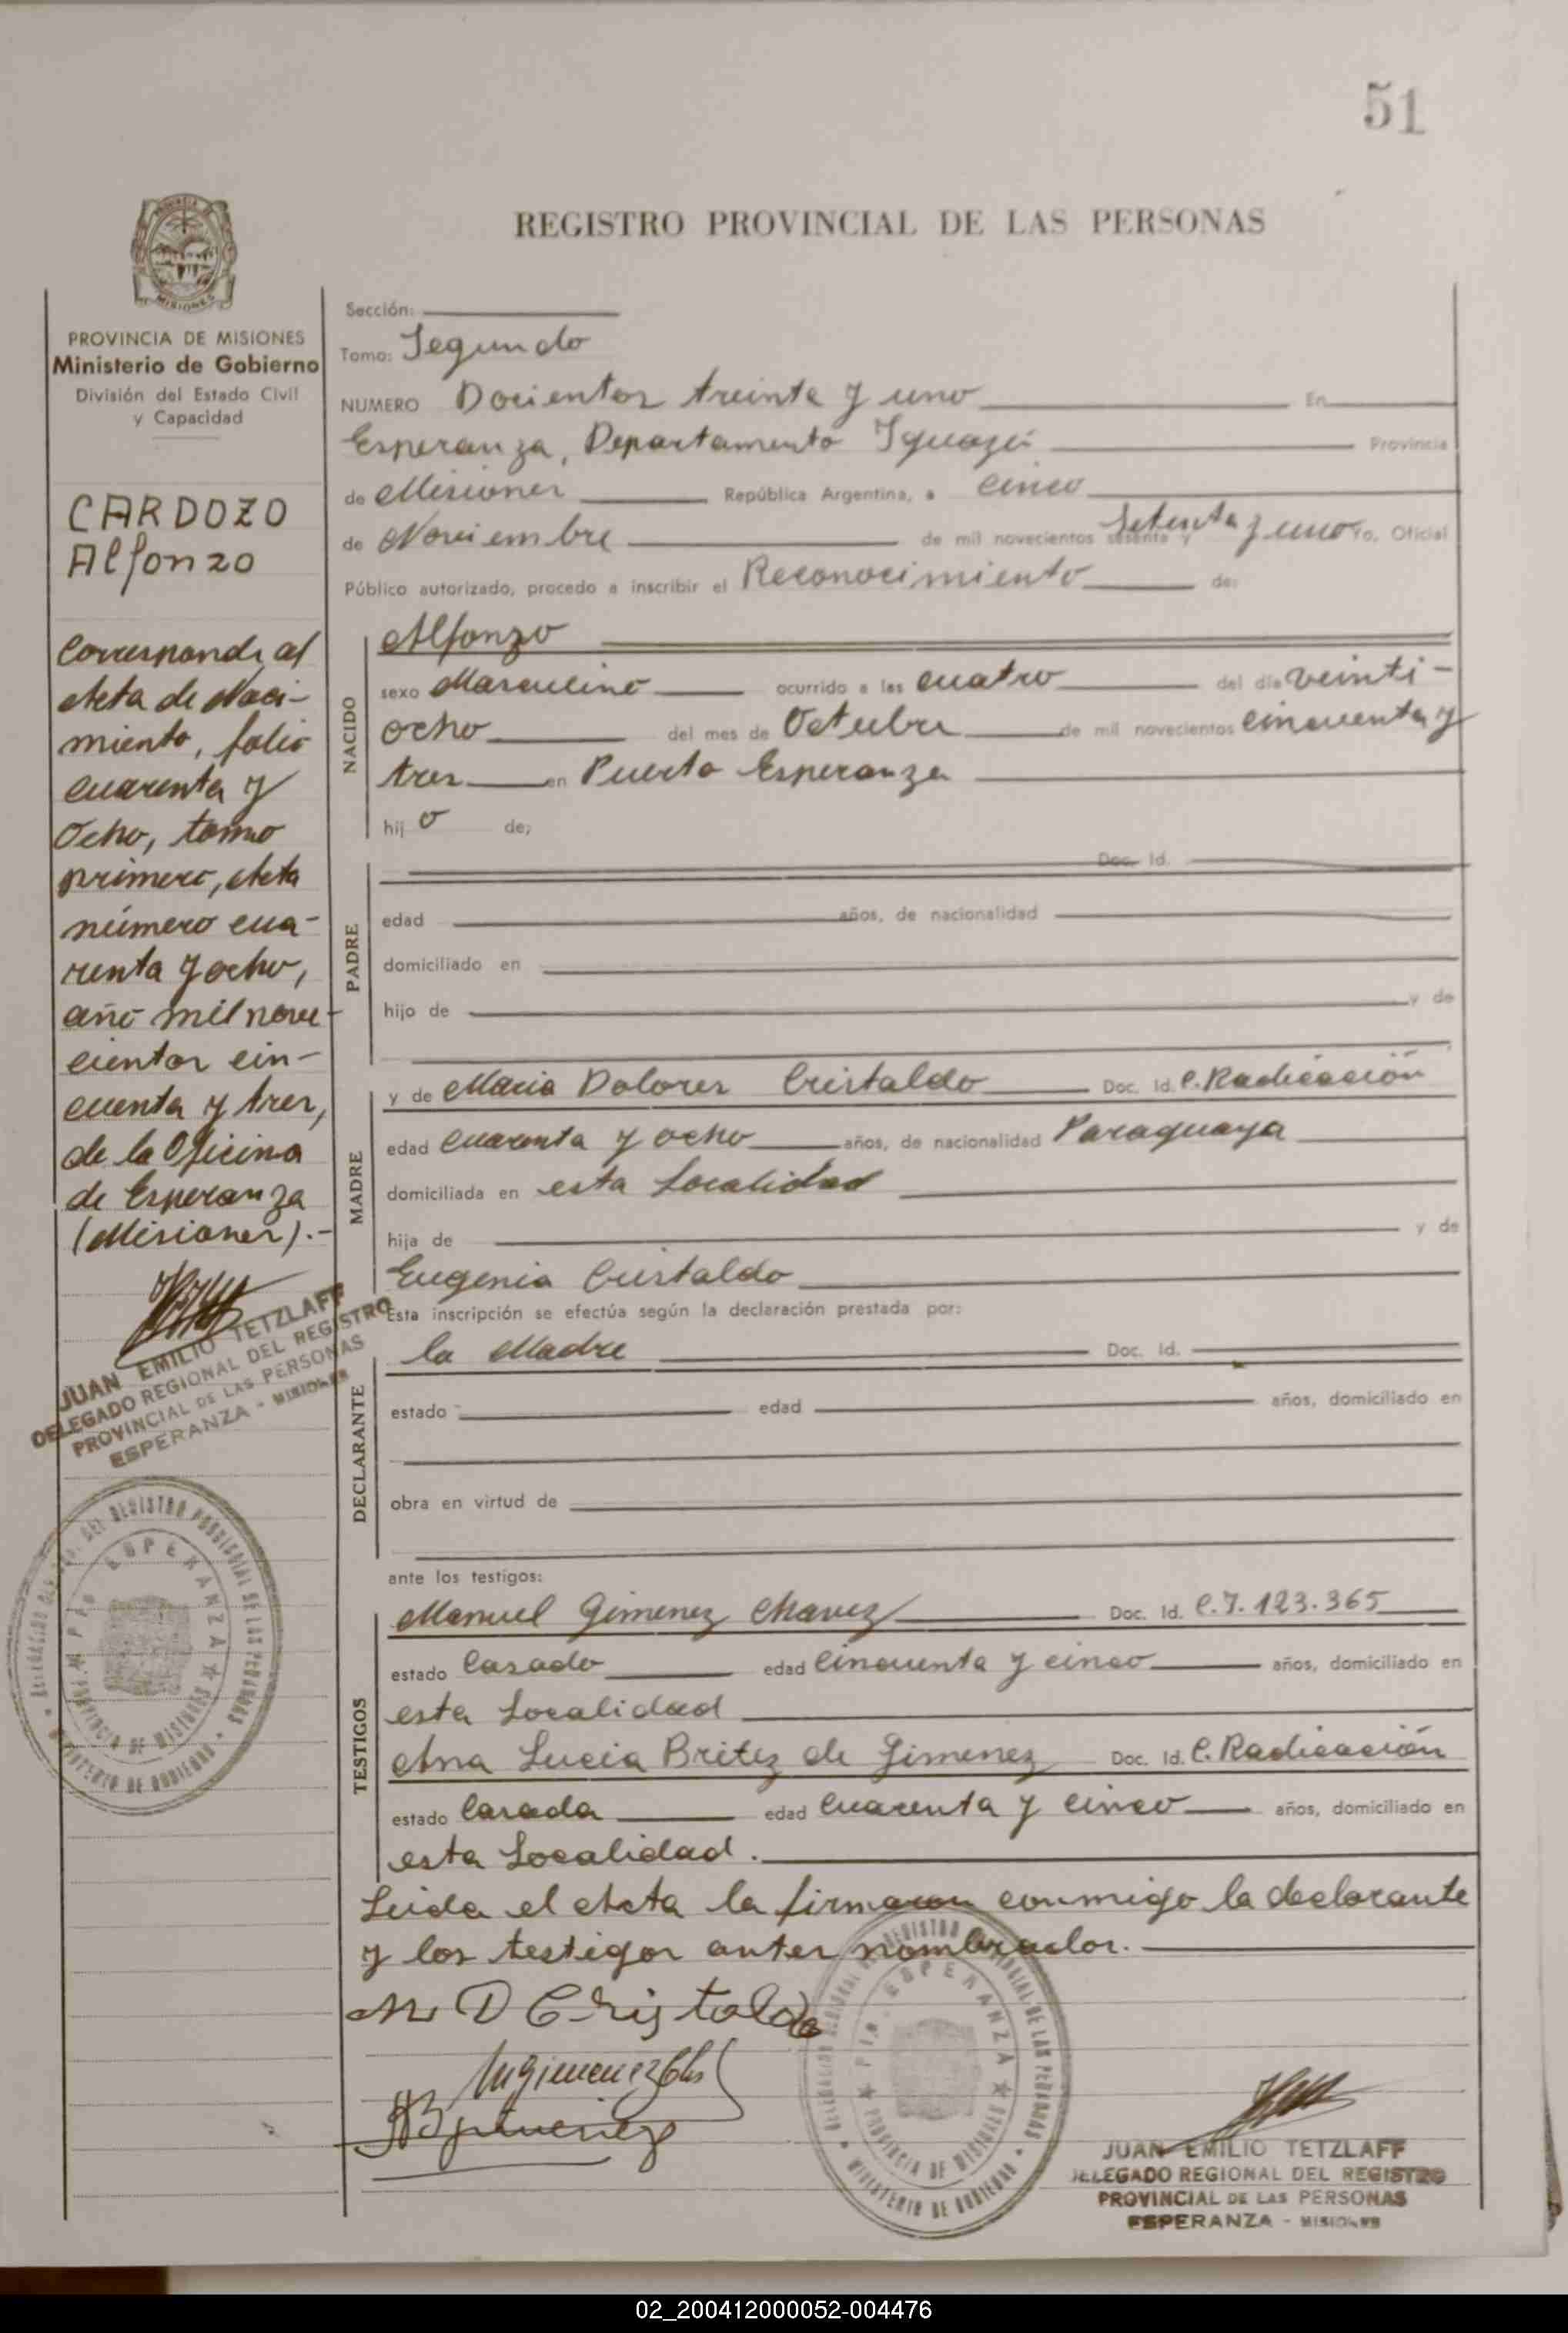 51
REGISTRO PROVINCIAL DE LAS PERSONAS
PROVINCIA DE MISIONES
Ministerio de Gobierno
División del Estado Civil
y Capacidad
CARDOZO
Alfonzo
Corresponde al
Acta de Naci-
miento, folio
cuarenta y
Ocho, tomo
primero, Acta
número cua-
renta y ocho,
año mil nove-
cientos cin-
cuenta y tres,
de la Oficina
de Esperanza
(Misiones).-
JUAN EMILIO TETZLAFF
DELEGADO REGIONAL DEL REGISTRO
PROVINCIAL DE LAS PERSONAS
ESPERANZA - MISIONES
Sección:
Tomo: Segundo
NUMERO Docientos treinta y uno En
Esperanza, Departamento Iguazú Provincia
de Misiones República Argentina, a cinco
de Noviembre de mil novecientos sesenta y Setenta y uno Yo, Oficial
Público autorizado, procedo a inscribir el Reconocimiento de:
NACIDO
Alfonzo
sexo Masculino ocurrido a las cuatro del día veinti-
ocho del mes de Octubre de mil novecientos cincuenta y
tres en Puerto Esperanza
hijo de;
PADRE
Doc. Id.
edad años, de nacionalidad
domiciliado en
hijo de y de
MADRE
y de Maria Dolores Cristaldo Doc. Id. C. Radicación
edad cuarenta y ocho años, de nacionalidad Paraguaya
domiciliada en esta Localidad
hija de y de
Eugenia Cristaldo
Esta inscripción se efectúa según la declaración prestada por:
DECLARANTE
la Madre Doc. Id.
estado edad años, domiciliado en
obra en virtud de
ante los testigos:
TESTIGOS
Manuel Gimenez Chavez Doc. Id. C.I. 123.365
estado Casado edad Cincuenta y cinco años, domiciliado en
esta Localidad
Ana Lucia Britez de Gimenez Doc. Id. C. Radicación
estado Casada edad Cuarenta y cinco años, domiciliado en
esta Localidad.
Leida el Acta la firmaron conmigo la declarante
y los testigos antes nombrados.
M D Cristaldo
ESPERANZA
PROVINCIA DE MISIONES
MINISTERIO DE GOBIERNO
JUAN EMILIO TETZLAFF
DELEGADO REGIONAL DEL REGISTRO
PROVINCIAL DE LAS PERSONAS
ESPERANZA - MISIONES
02_200412000052-004476